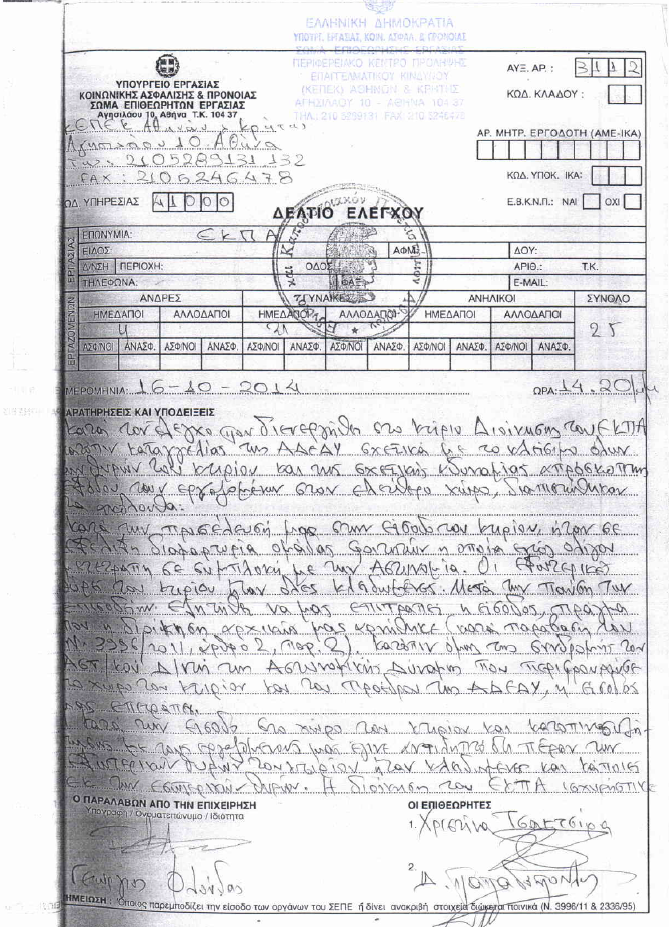 ΕΛΛΗΝΙΚΗ ΔΗΜΟΚΡΑΤΙΑ
ΥΠΟΥΡ. ΕΡΓΑΣΙΑΣ, ΚΟΙΝ. ΑΣΦΑΛ. & ΠΡΟΝΟΙΑΣ
ΣΩΜΑ ΕΠΙΘΕΩΡΗΣΗΣ ΕΡΓΑΣΙΑΣ
ΠΕΡΙΦΕΡΕΙΑΚΟ ΚΕΝΤΡΟ ΠΡΟΛΗΨΗΣ
ΕΠΑΓΓΕΛΜΑΤΙΚΟΥ ΚΙΝΔΥΝΟΥ
(ΚΕΠΕΚ) ΑΘΗΝΩΝ & ΚΡΗΤΗΣ
ΑΓΗΣΙΛΑΟΥ 10 - ΑΘΗΝΑ 104 37
ΤΗΛ.: 210 5289131 FAX 210 5246478
ΥΠΟΥΡΓΕΙΟ ΕΡΓΑΣΙΑΣ
ΚΟΙΝΩΝΙΚΗΣ ΑΣΦΑΛΙΣΗΣ & ΠΡΟΝΟΙΑΣ
ΣΩΜΑ ΕΠΙΘΕΩΡΗΤΩΝ ΕΡΓΑΣΙΑΣ
Αγησιλάου 10, Αθήνα Τ.Κ. 104 37
ΚΕΠΕΚ Αθηνών & Κρήτης
Αγησιλάου 10 Αθήνα
2105289131 132
FAX: 2105246478
ΑΥΞ. ΑΡ.: 3112
ΚΩΔ. ΚΛΑΔΟΥ:
ΑΡ. ΜΗΤΡ. ΕΡΓΟΔΟΤΗ (ΑΜΕ-ΙΚΑ)
ΚΩΔ. ΥΠΟΚ. ΙΚΑ:
Ε.Β.Κ.Ν.Π.: ΝΑΙ ΟΧΙ
ΩΔ. ΥΠΗΡΕΣΙΑΣ 41000
ΔΕΛΤΙΟ ΕΛΕΓΧΟΥ
ΕΡΓΑΣΙΑΣ
ΕΠΩΝΥΜΙΑ: ΕΚΠΑ
ΕΙΔΟΣ: ΑΦΜ: ΔΟΥ:
Δ/ΝΣΗ ΠΕΡΙΟΧΗ: ΟΔΟΣ ΑΡΙΘ.: Τ.Κ.
ΤΗΛΕΦΩΝΑ: ΦΑΞ E-MAIL:
ΕΡΓΑΖΟΜΕΝΩΝ
ΑΝΔΡΕΣ ΓΥΝΑΙΚΕΣ ΑΝΗΛΙΚΟΙ ΣΥΝΟΛΟ
ΗΜΕΔΑΠΟΙ ΑΛΛΟΔΑΠΟΙ ΗΜΕΔΑΠΟΙ ΑΛΛΟΔΑΠΟΙ ΗΜΕΔΑΠΟΙ ΑΛΛΟΔΑΠΟΙ
4 21 25
ΑΣΦ/ΝΟΙ ΑΝΑΣΦ. ΑΣΦ/ΝΟΙ ΑΝΑΣΦ. ΑΣΦ/ΝΟΙ ΑΝΑΣΦ. ΑΣΦ/ΝΟΙ ΑΝΑΣΦ. ΑΣΦ/ΝΟΙ ΑΝΑΣΦ. ΑΣΦ/ΝΟΙ ΑΝΑΣΦ.
ΜΕΡΟΜΗΝΙΑ: 16-10-2014 ΩΡΑ: 14.20 μμ
ΑΡΑΤΗΡΗΣΕΙΣ ΚΑΙ ΥΠΟΔΕΙΞΕΙΣ
Κατά τον έλεγχο που διενεργήθη στο κτίριο Διοίκησης του ΕΚΠΑ
κατόπιν καταγγελίας της ΑΔΕΔΥ σχετικά με το κλείσιμο όλων
των θυρών του κτιρίου και της σχετικής αδυναμίας απρόσκοπτης
εξόδου των εργαζομένων στον ελεύθερο χώρο, διαπιστώθηκαν
τα ακόλουθα:
Κατά την προσέλευσή μας στην είσοδο του κτιρίου, ήταν σε
εξέλιξη διαμαρτυρία ομάδας φοιτητών η οποία εντός ολίγου
σε συμπλοκή με την Αστυνομία. Οι εξωτερικές
θύρες του κτιρίου ήταν όλες κλειδωμένες. Μετά την παύση των
επεισοδίων ζητήθη να μας επιτραπεί η είσοδος, πράγμα
που η διοίκηση αρχικώς μας αρνήθηκε (κατά παράβαση του
Ν. 3996/2011, άρθρο 2, παρ. 2). Κατόπιν όμως της συνδρομής του
ΑΣΤ/κού Δ/ντή της Αστυνομικής Δύναμης που περιφρουρούσε
το χώρο του κτιρίου και του Προέδρου της ΑΔΕΔΥ, η είσοδος
μας επετράπη.
Κατά την είσοδο στο χώρο του κτιρίου και κατόπιν συζή-
τησης με τους εργαζομένους μας έγινε αντιληπτό ότι πέραν των
εξωτερικών θυρών του κτιρίου ήταν κλειδωμένες και κάποιες
εκ των εσωτερικών θυρών. Η διοίκηση του ΕΚΠΑ ισχυρίστηκε
Ο ΠΑΡΑΛΑΒΩΝ ΑΠΟ ΤΗΝ ΕΠΙΧΕΙΡΗΣΗ
Υπογραφή / Ονοματεπώνυμο / Ιδιότητα
Γεώργιος
ΟΙ ΕΠΙΘΕΩΡΗΤΕΣ
1. Χριστίνα
2. Δ.
ΗΜΕΙΩΣΗ: Όποιος παρεμποδίζει την είσοδο των οργάνων του ΣΕΠΕ ή δίνει ανακριβή στοιχεία διώκεται ποινικά (Ν. 3996/11 & 2336/95)